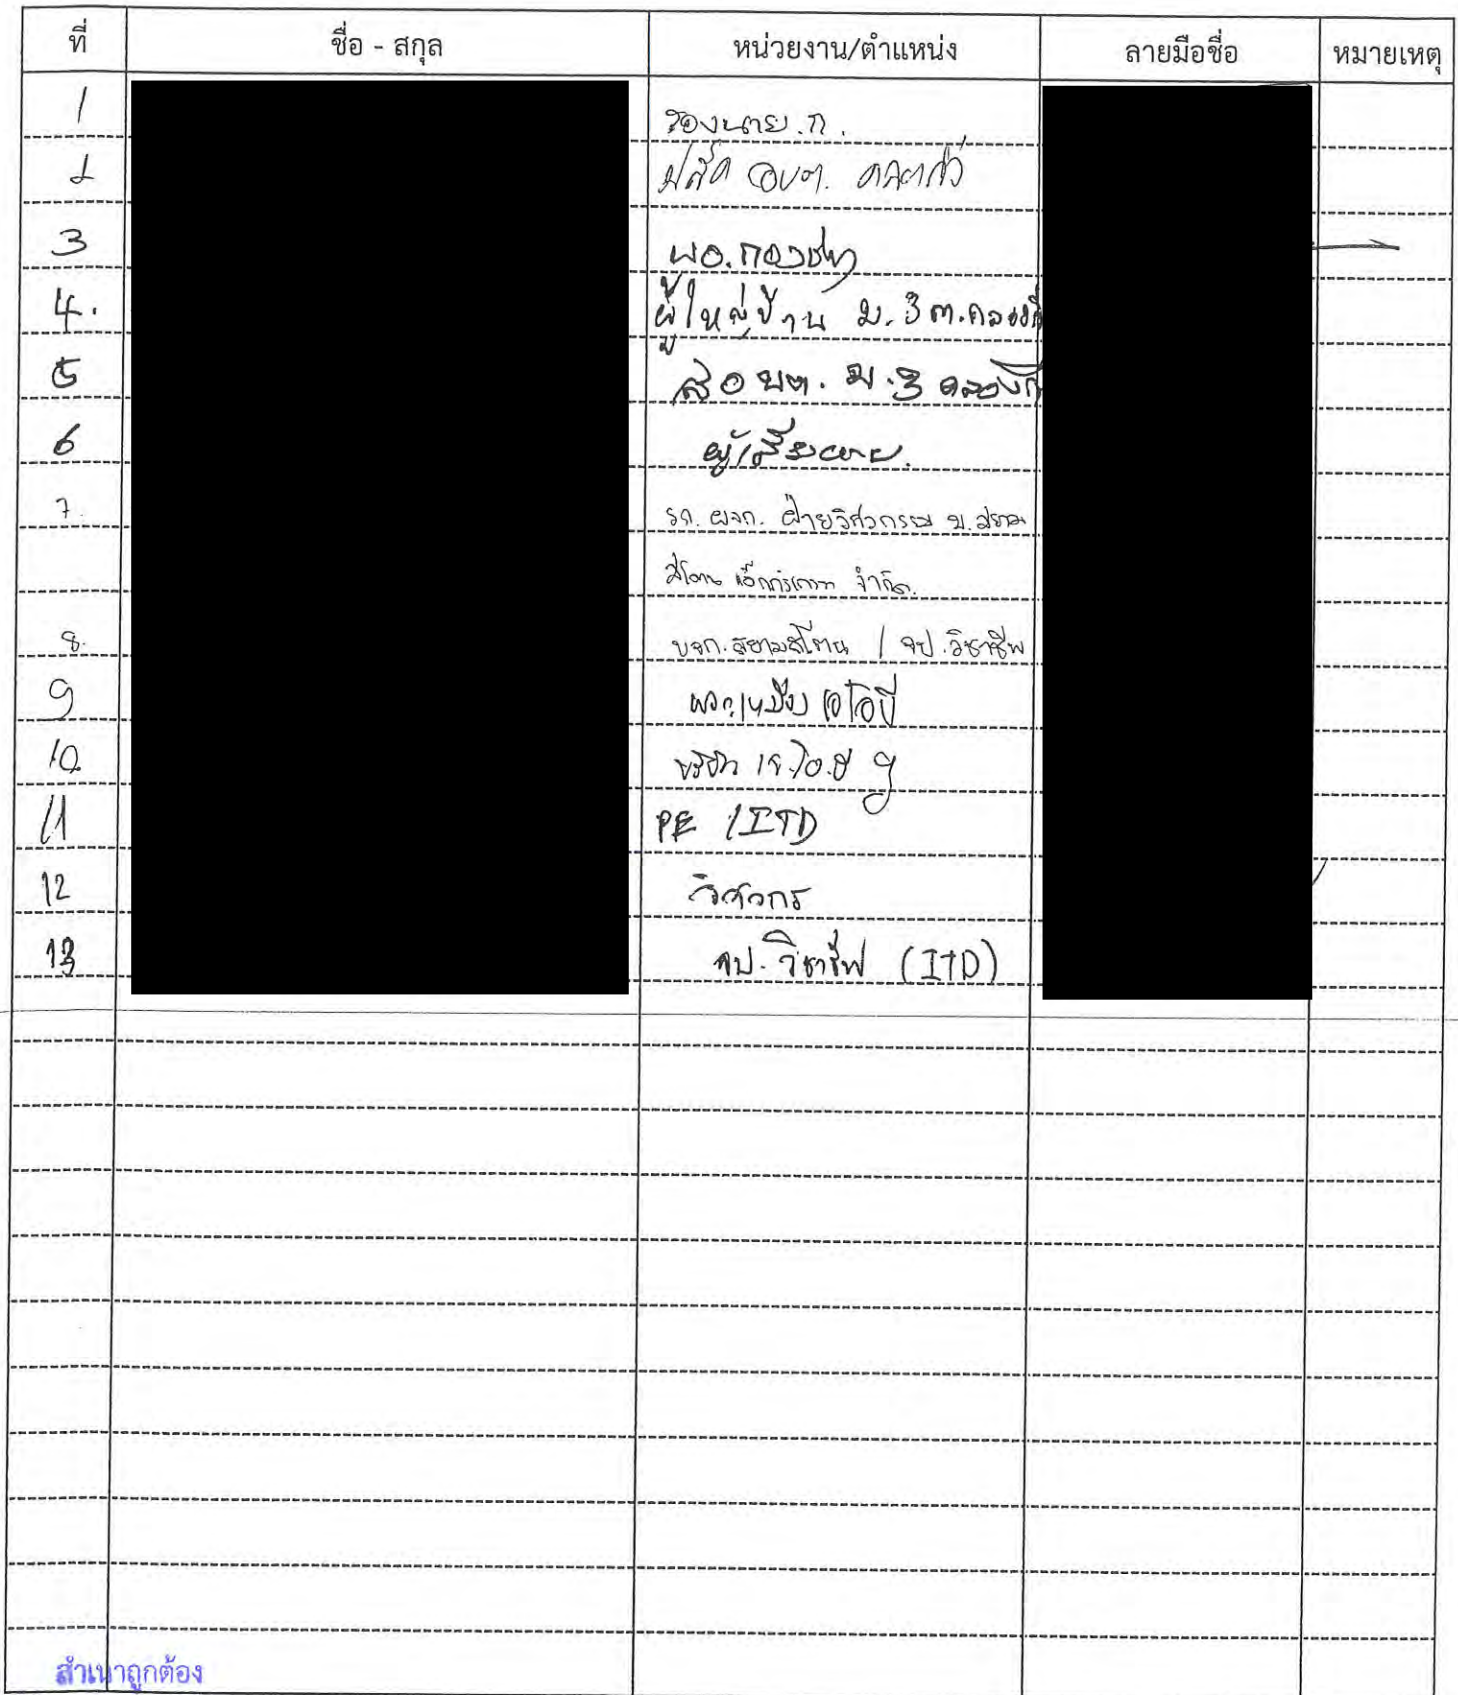 ที่ ชื่อ - สกุล หน่วยงาน/ตำแหน่ง ลายมือชื่อ หมายเหตุ
1 รองนายก.
2 ปลัด อบต.
3 ผอ.กองช่าง
4. ผู้ใหญ่บ้าน ม.3 ต.
5 ส.อบต. ม.3
6 ผู้เสียหาย.
7. รก. ผจก. ฝ่ายวิศวกรรม บ.สยาม
สโตน จำกัด.
8. บจก.สยามสโตน / จป.วิชาชีพ
9 ผจก.เหมือง เอโอบี
10. บริษัท
11 PE (ITD)
12 วิศวกร
13 จป.วิชาชีพ (ITD)
สำเนาถูกต้อง